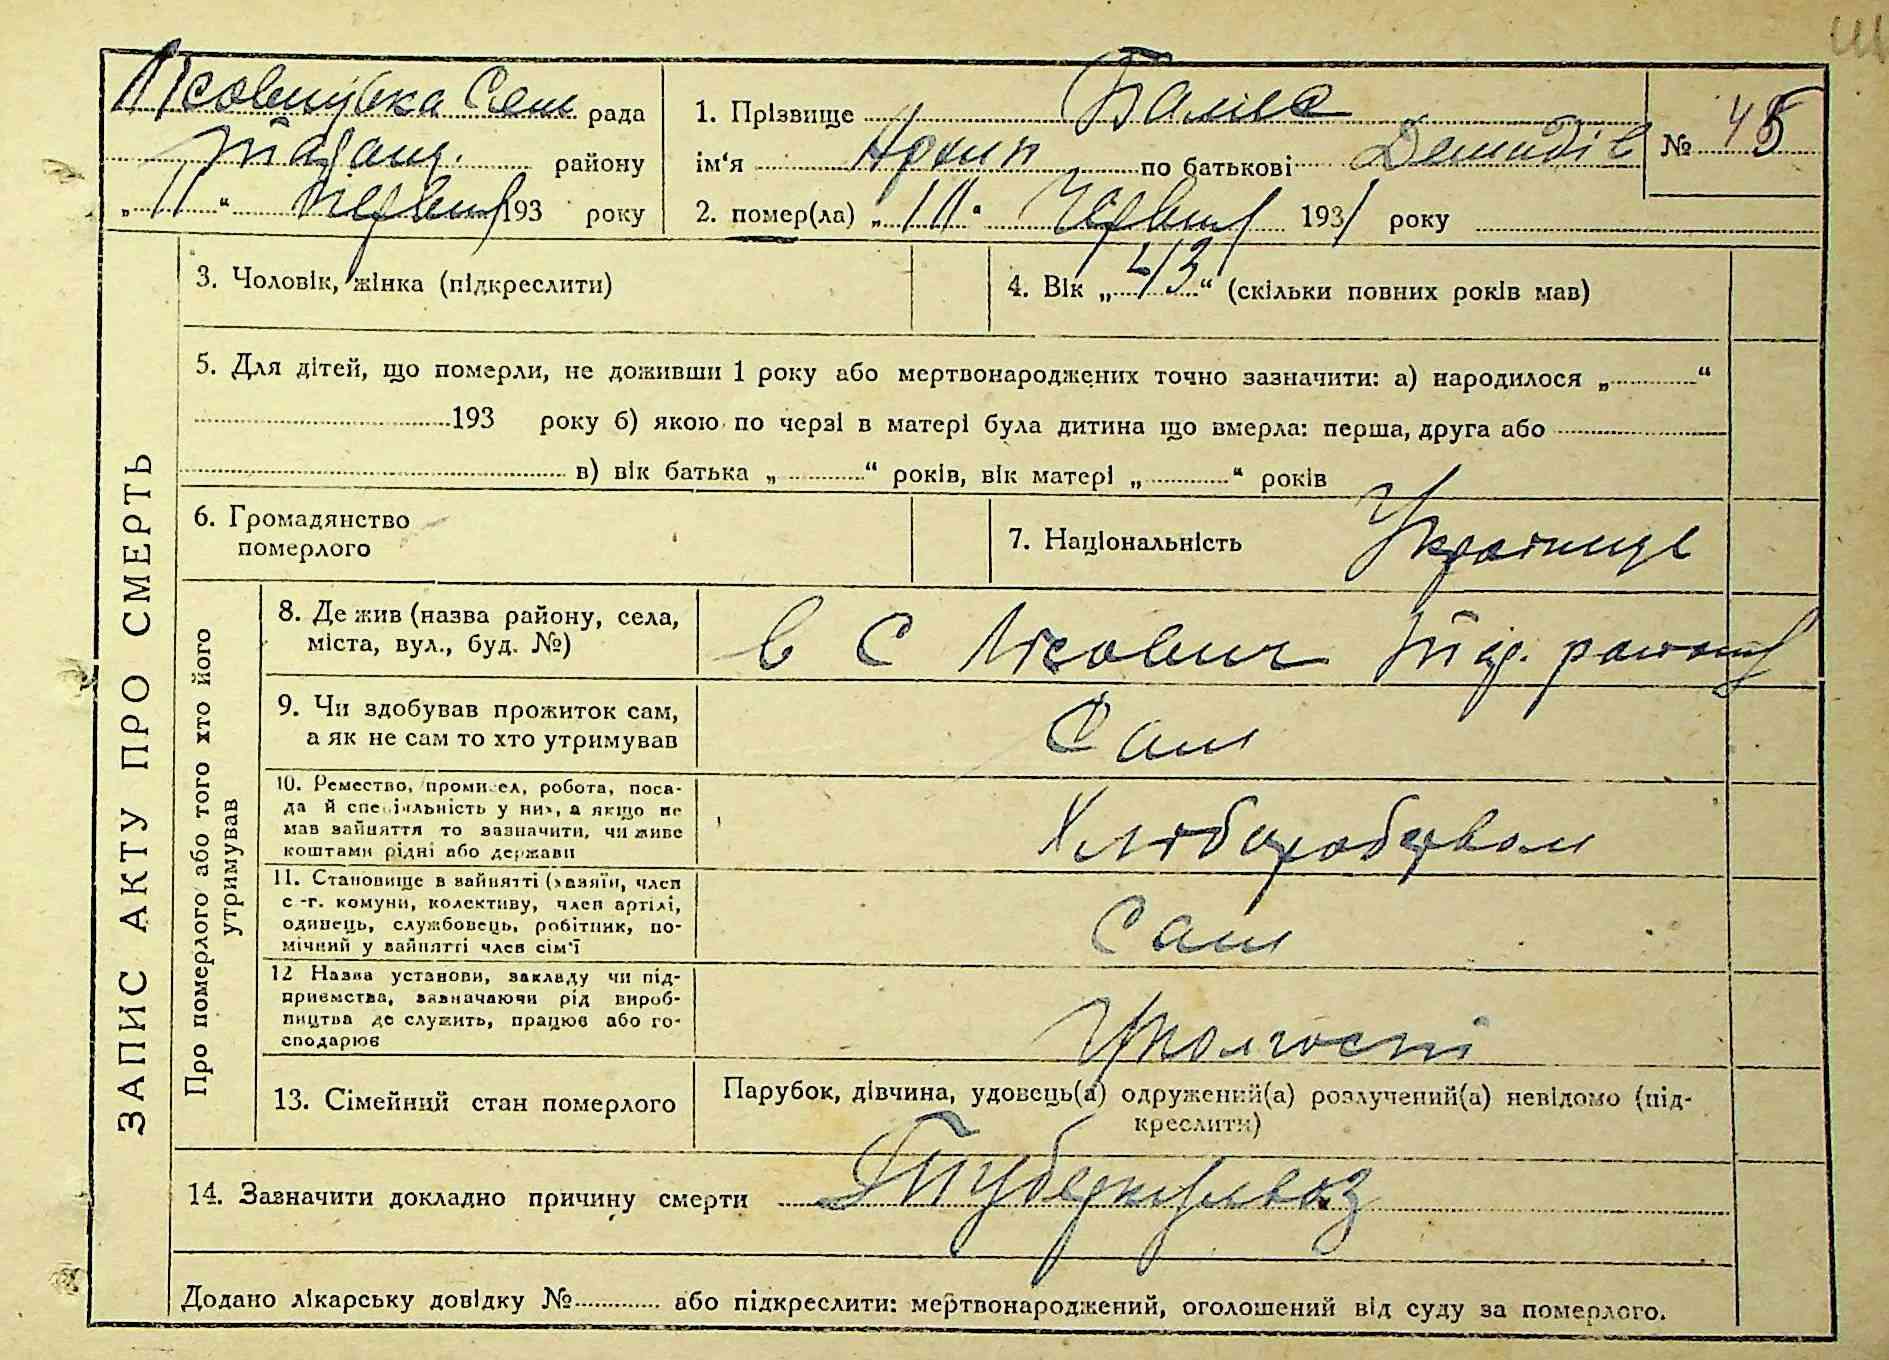 рада
району
„ 11 “ червня 193 року
1. Прізвище
ім‘я Архип по батькові Демидів
№ 45
2. помер(ла) „ “ Червня 1931 року
ЗАПИС АКТУ ПРО СМЕРТЬ
3. Чоловік, жінка (підкреслити)
4. Вік „ 43 “ (скільки повних років мав)
5. Для дітей, що померли, не доживши 1 року або мертвонароджених точно зазначити: а) народилося „ “
193 року б) якою по черзі в матері була дитина що вмерла: перша, друга або
в) вік батька „ “ років, вік матері „ “ років
6. Громадянство
померлого
7. Національність Українець
Про померлого або того хто його
утримував
8. Де жив (назва району, села,
міста, вул., буд. №)
в С Лісович району
9. Чи здобував прожиток сам,
а як не сам то хто утримував
Сам
10. Ремество, промисел, робота, поса-
да й спеціяльність у них, а якщо не
мав зайняття то зазначити, чи живе
коштами рідні або держави
Хліборобством
11. Становище в зайнятті (хазяїн, член
с.-г. комуни, колективу, член артілі,
одинець, службовець, робітник, по-
мічний у зайнятті член сім‘ї
Сам
12 Назва установи, закладу чи під-
приємства, зазначаючи рід вироб-
ництва де служить, працює або го-
сподарює
13. Сімейний стан померлого
Парубок, дівчина, удовець(а) одружений(а) розлучений(а) невідомо (під-
креслити)
14. Зазначити докладно причину смерти Туберкульоз
Додано лікарську довідку № або підкреслити: мертвонароджений, оголошений від суду за померлого.